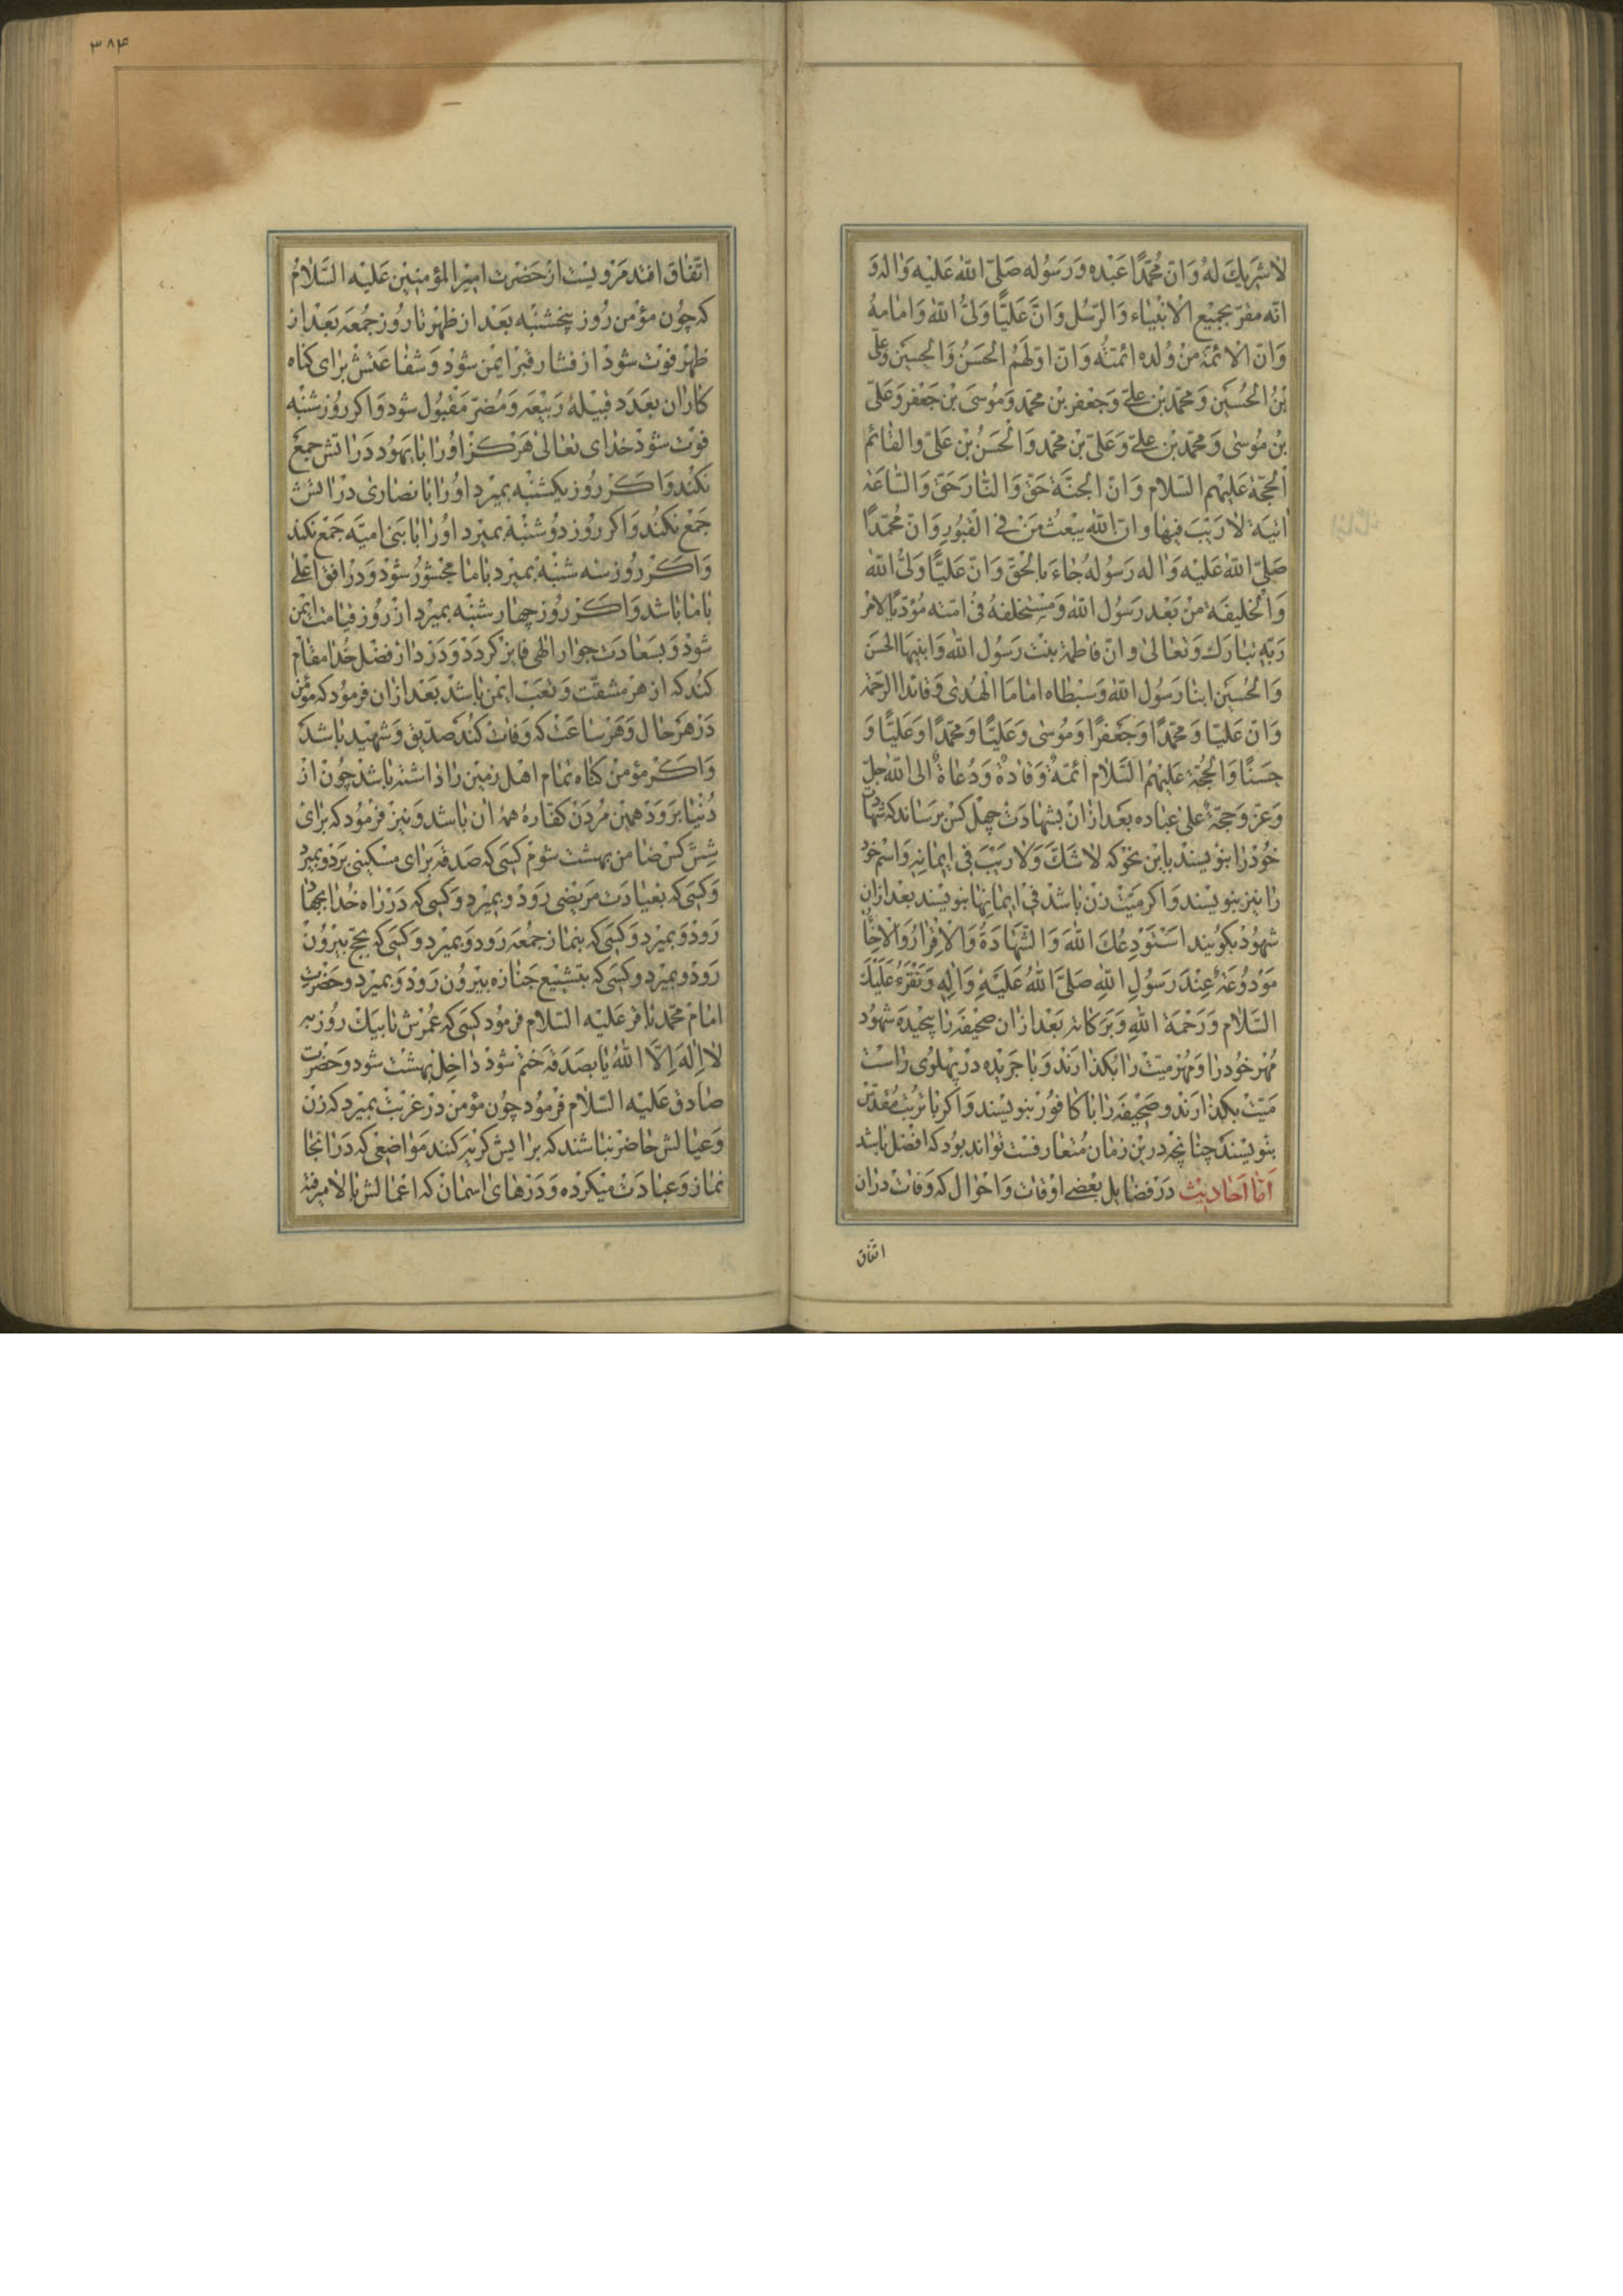 لا شریك له وان محمدا عبده ورسوله صلی الله علیه واله و
انه مقر بجمیع الانبیاء والرسل وان علیا ولی الله وامامه
وان الائمة من ولده ائمته وان اولهم الحسن والحسین وعلی
بن الحسین ومحمد بن علی وجعفر بن محمد وموسی بن جعفر وعلی
بن موسی ومحمد بن علی وعلی بن محمد والحسن بن علی والقائم
الحجة علیهم السلام وان الجنة حق والنار حق والساعة
اتیة لا ریب فیها وان الله یبعث من فی القبور وان محمدا
صلی الله علیه واله رسوله جاء بالحق وان علیا ولی الله
والخلیفة من بعد رسول الله ومستخلفه فی امته مؤدیا لامر
ربه تبارك وتعالی وان فاطمة بنت رسول الله وابنیها الحسن
والحسین ابنا رسول الله وسبطاه اماما الهدی وقائدا الرحمة
وان علیا ومحمدا وجعفرا وموسی وعلیا ومحمدا وعلیا و
حسنا والحجة علیهم السلام ائمة وقادة ودعاة الی الله جل
وعز وحجة علی عباده بعد ازان بشهادت چهل کس برساند که شهادت
خود را بنویسند باین نحو که لا شك ولا ریب فی ایمانه واسم خود
را نیز بنویسند واکر میت زن باشد فی ایمانها بنویسند بعد ازان
شهود بکویند استودعك الله والشهادة والاقرار والاخاء
مودوعة عند رسول الله صلی الله علیه واله ونقرء علیك
السلام ورحمة الله وبرکاته بعد ازان صحیفه را پیچیده شهود
مهر خود را ومهر میت را بکذارند وبا جریده در پهلوی راست
میت بکذارند وصحیفه را با کافور بنویسند واکر با تربت مقدس
بنویسند چنانچه درین زمان متعارفست تواند بود که افضل باشد
اما احادیث در فضایل بعضی اوقات واحوال که وفات دران
اتفاق
۳۸۴
اتفاق افتد مرویست از حضرت امیر المؤمنین علیه السلام
که چون مؤمن روز پنجشنبه بعد از ظهر تا روز جمعه بعد از
ظهر فوت شود از فشار قبر ایمن شود وشفاعتش برای کناه
کاران بعدد قبیلۀ ربیعه ومضر مقبول شود واکر روز شنبه
فوت شود خدای تعالی هرکز او را با یهود در اتش جمع
نکند واکر روز یکشنبه بمیرد او را با نصاری در اتش
جمع نکند واکر روز دوشنبه بمیرد او را با بنی امیه جمع نکند
واکر روز سه شنبه بمیرد با ما محشور شود ودر افق اعلی
با ما باشد واکر روز چهار شنبه بمیرد از روز قیامت ایمن
شود وبسعادت جوار الهی فایز کردد ودر دار فضل خدا مقام
کند که از هر مشقت وتعب ایمن باشد بعد ازان فرمود که مؤمن
در هر حال وهر ساعت که وفات کند صدیق وشهید باشد
واکر مؤمن کناه تمام اهل زمین را داشته باشد چون از
دنیا برود همین مردن کفارۀ همۀ ان باشد ونیز فرمود که برای
شش کس ضامن بهشت شوم کسی که صدقه برای مسکینی برد وبمیرد
وکسی که بعیادت مریضی رود وبمیرد وکسی که در راه خدا بجهاد
رود وبمیرد وکسی که بنماز جمعه رود وبمیرد وکسی که بحج بیرون
رود وبمیرد وکسی که بتشییع جنازه بیرون رود وبمیرد وحضرت
امام محمد باقر علیه السلام فرمود کسی که عمرش تا بیك روزه
لا اله الا الله یا بصدقه ختم شود داخل بهشت شود وحضرت
صادق علیه السلام فرمود چون مؤمن در غربت بمیرد که زن
وعیالش حاضر نباشند که برایش کریه کنند مواضعی که در انجا
نماز وعبادت میکرده ودرهای اسمان که اعمالش بالا میرفته